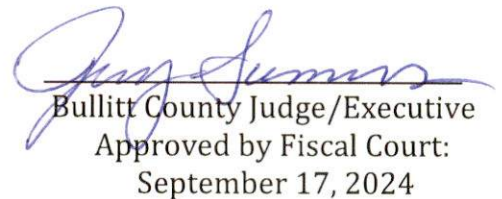 Jerry Summers
Bullitt County Judge/Executive
Approved by Fiscal Court:
September 17, 2024